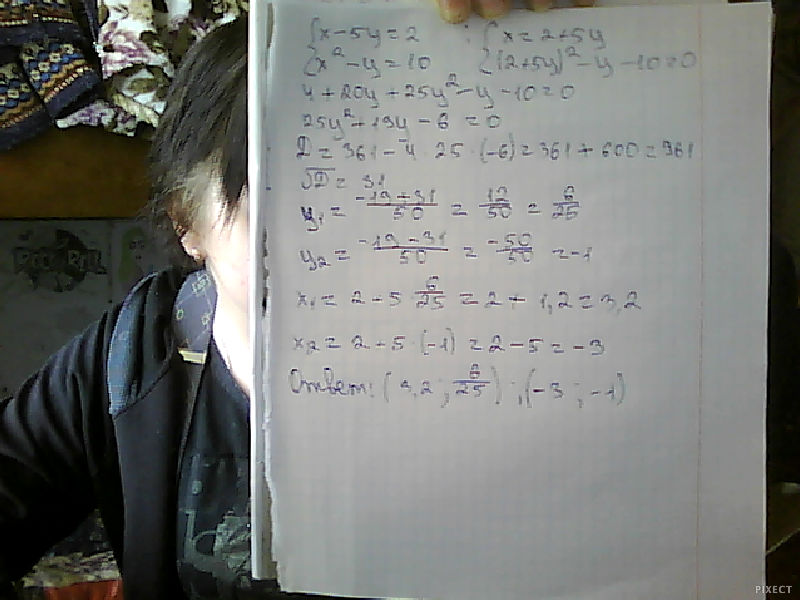 {x - 5y = 2 ; {x = 2 + 5y
{x² - y = 10 {(2+5y)² - y - 10 = 0
4 + 20y + 25y² - y - 10 = 0
25y² + 19y - 6 = 0
D = 361 - 4 · 25 · (-6) = 361 + 600 = 961
√D = 31
y₁ = (-19+31)/50 = 12/50 = 6/25
y₂ = (-19-31)/50 = -50/50 = -1
x₁ = 2 + 5 · 6/25 = 2 + 1,2 = 3,2
x₂ = 2 + 5 · (-1) = 2 - 5 = -3
Ответ: (3,2 ; 6/25) ; (-3 ; -1)
PIXECT